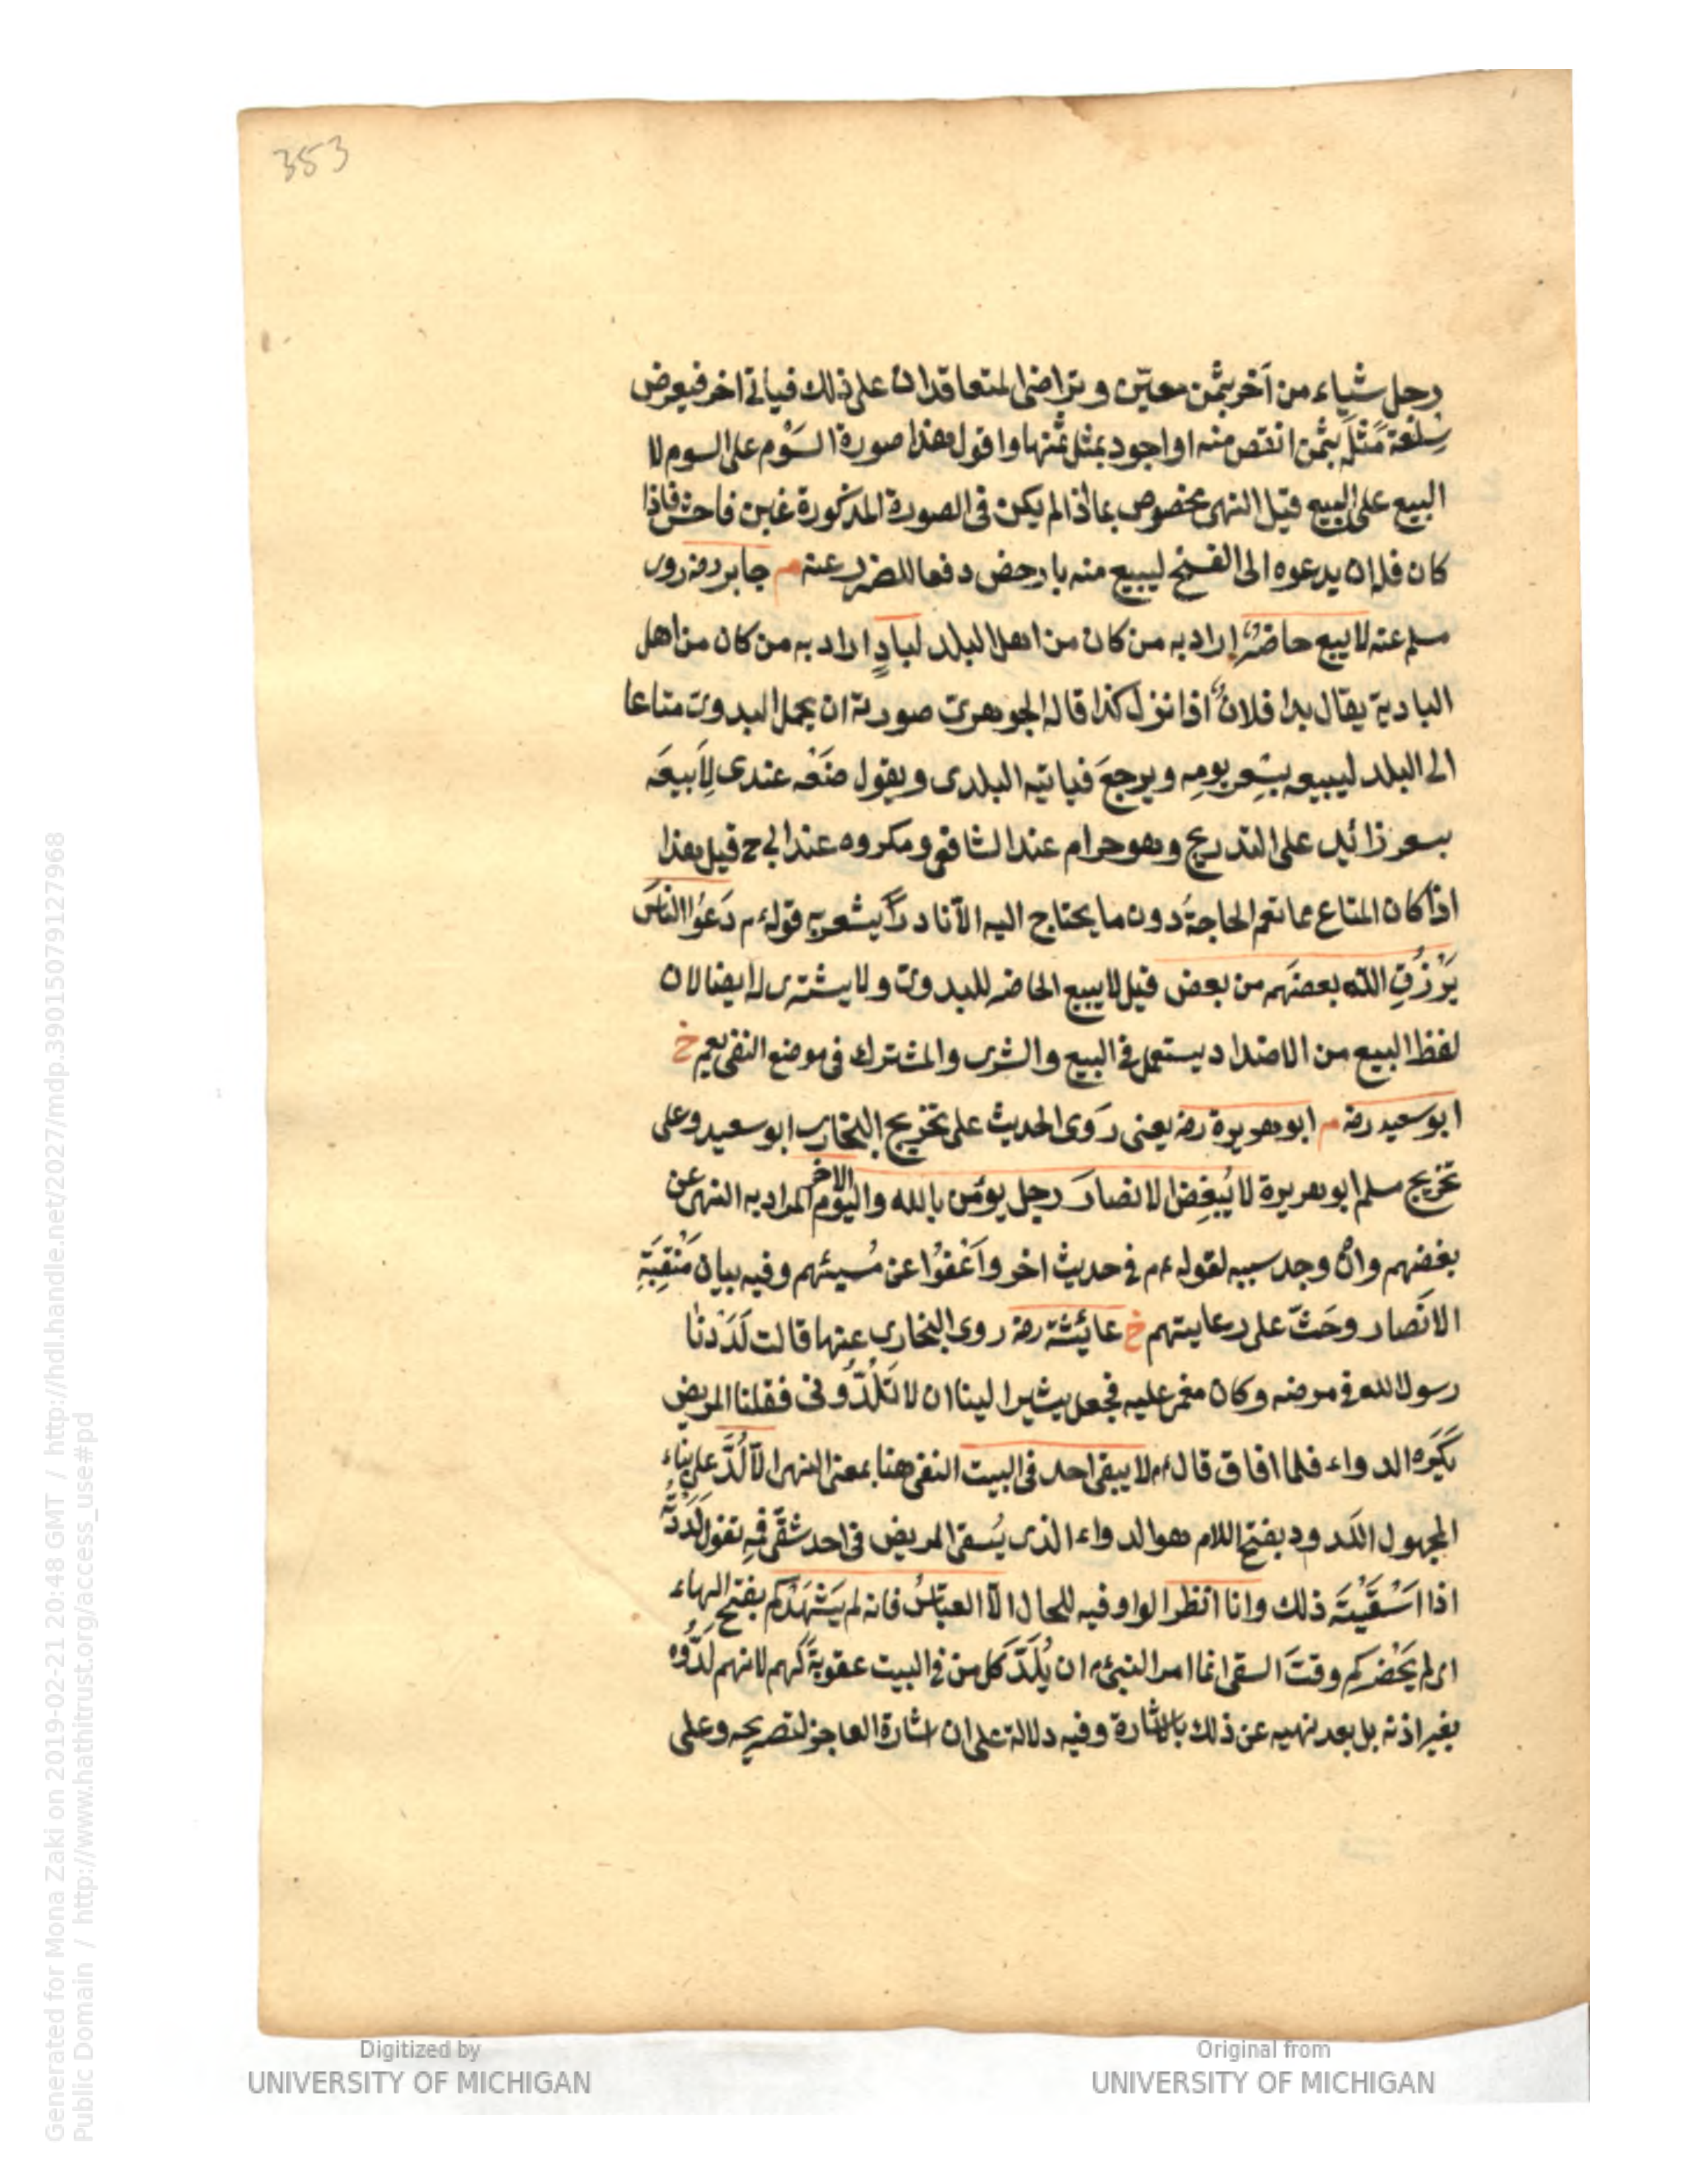 353
رجل شياء من آخر بثمن معيّن و تراضى المتعاقدان على ذلك فياتى اخر فيعرض
سِلعَة مَثلَ بثمن انقص منه او اجود بمثل ثمنها و اقول هذا صورة السَوْم على السوم لا
البيع على البيع قيل النهى مخصوص بما اذا لم يكن فى الصورة المذكورة غبن فاحش فاذا
كان فله ان يدعوه الى الفسخ ليبيع منه بارخص دفعا للضرر عنه م جابر رضه روى
مسلم عنه لا يبيع حاضرٌ اراد به من كان من اهل البلد لبادٍ اراد به من كان من اهل
البادية يقال بدا فلانٌ اذا نزل كذا قاله الجوهرى صورته ان يحمل البدوى متاعا
الى البلد ليبيعه بسِعر يومِه و يرجعَ فياتيه البلدى و يقول ضَعْه عندى لِاَبيعَه
بسعر زائد على التدريج وهو حرام عند الشافعى ومكروه عند ابى ح قيل هذا
اذا كان المتاع مما تعم الحاجةُ دون ما يحتاج اليه الّا نادراً يشعر به قوله ءم دَعُوا الناسَ
يَرْزُقِ اللّه بعضَهم من بعض قيل لا يبيع الحاضر للبدوى ولا يشترى له ايضا لان
لفظ البيع من الاضداد يستعمل فى البيع والشرى والمشترك فى موضع النفى يعم خ
ابو سعيد رضه م ابو هريرة رضه يعنى رَوى الحديث على تخريج البخارى ابو سعيد وعلى
تخريج مسلم ابو هريرة لا يُبغِض الانصارَ رجل يؤمن بالله واليوم الاخر المراد به النهى عن
بغضهم وانْ وجد سببه لقوله ءم فى حديث اخر واَعْفوُا عن مُسيئهم وفيه بيان مَنْقِبَةِ
الانَصار وحَثّ على رعايتهم خ عائيشة رضه روى البخارى عنها قالت لَدَدْنا
رسول الله فى مرضه وكان مغمى عليه فجعل يشير الينا ان لا تَلُدُّونى فقلنا المريض
يَكْرَه الدواء فلما افاق قال ءم لا يبقى احد فى البيت النفى هنا بمعنى النهى الّا لُدَّ على بناء
المجهول اللَدود بفتح اللام هو الدواء الذى يُسقى المريض فى احد شقّى فمِه تقول لَدَدْتُه
اذا اَسْقَيْتَه ذلك وانا انظر الواو فيه للحال الّا العبّاسُ فانه لم يَشْهَدْكم بفتح الهاء
اى لم يَحْضركم وقتَ السقى انما امر النبىّ ءم ان يُلَدَّ كل من فى البيت عقوبةً لهم لانهم لدُّوه
بغير اذنه بل بعد نهيه عن ذلك بالاشارة وفيه دلالة على ان اشارة العاجز كتصريحه وعلى
Digitized by
UNIVERSITY OF MICHIGAN
Original from
UNIVERSITY OF MICHIGAN
Generated for Mona Zaki on 2019-02-21 20:48 GMT / http://hdl.handle.net/2027/mdp.39015079127968
Public Domain / http://www.hathitrust.org/access_use#pd